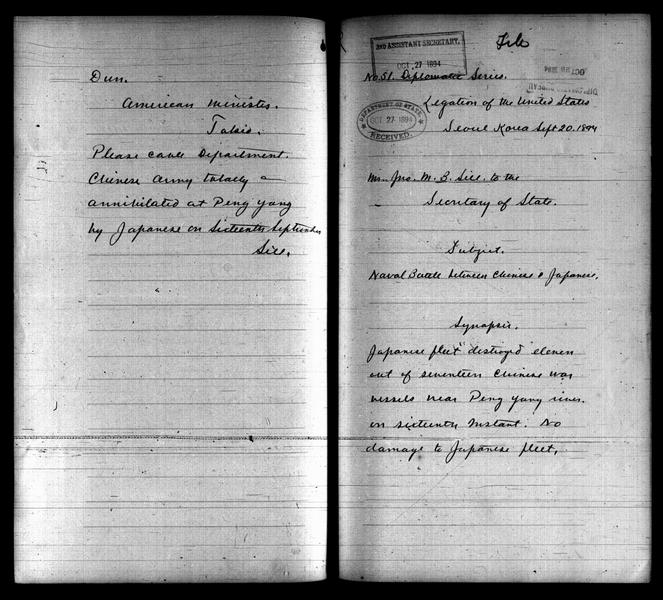 Dun.
American Minister.
Tokio.
Please cable Department.
Chinese army totally
annihilated at Peng Yang
by Japanese on Sixteenth September
Sill.
File
2ND ASSISTANT SECRETARY.
OCT 27 1894
No. 51. Diplomatic Series.
Legation of the United States
DEPARTMENT OF STATE
OCT 27 1894
RECEIVED.
Seoul Korea Sept 20. 1894
Mr. Jno. M. B. Sill. to the
Secretary of State.
Subject.
Naval Battle between Chinese & Japanese.
Synopsis.
Japanese fleet destroyed eleven
out of seventeen Chinese war
vessels near Peng Yang river.
on sixteenth instant. No
damage to Japanese fleet.